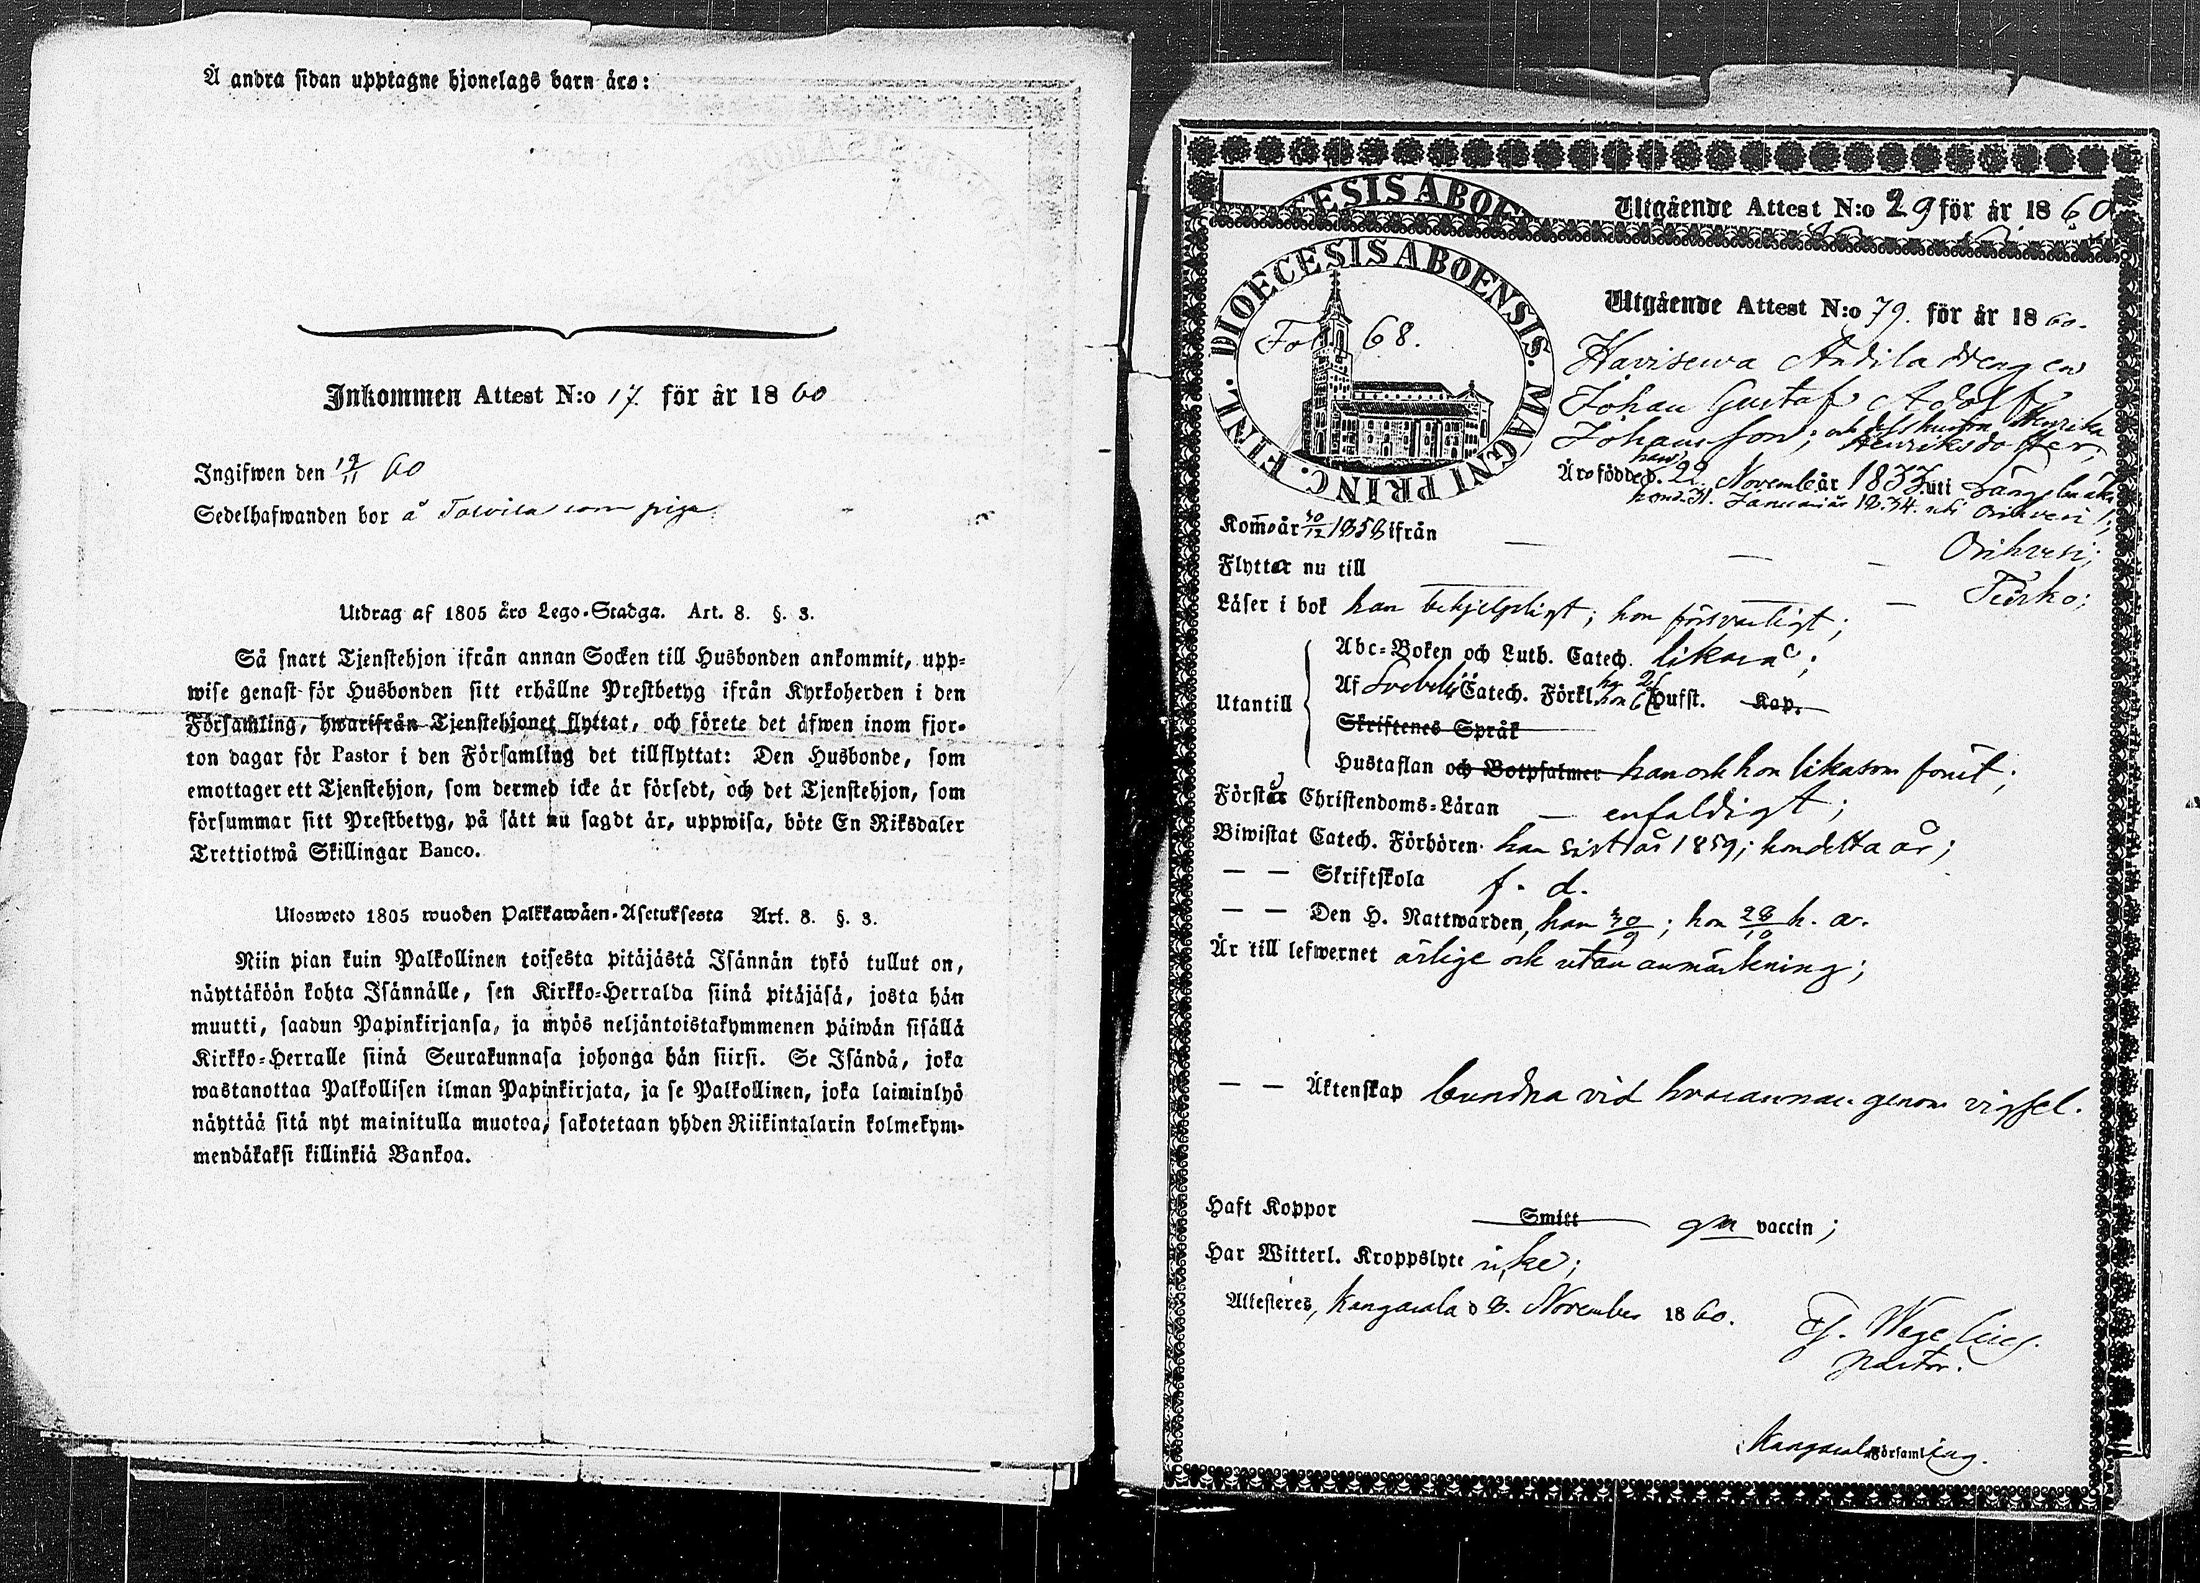 Å andra sidan upptagne hjonelags barn äro:
Inkommen Attest N:o 17. för år 1860
Ingifwen den 19/11 60
Sedelhafwanden bor å som piga
Utdrag af 1805 års Lego-Stadga. Art. 8. §. 3.
Så snart Tjenstehjon ifrån annan Socken till Husbonden ankommit, upp-
wise genast för Husbonden sitt erhållne Prestbetyg ifrån Kyrkoherden i den
Församling, hwarifrån Tjenstehjonet flyttat, och förete det äfwen inom fjor-
ton dagar för Pastor i den Församling det tillflyttat: Den Husbonde, som
emottager ett Tjenstehjon, som dermed icke är försedt, och det Tjenstehjon, som
försummar sitt Prestbetyg, på sätt nu sagdt är, uppwisa, böte En Riksdaler
Trettiotwå Skillingar Banco.
Ulosweto 1805 wuoden Palkkawäen-Asetuksesta Art. 8. §. 3.
Niin pian kuin Palkollinen toisesta pitäjästä Isännän tykö tullut on,
näyttäköön kohta Isännälle, sen Kirkko-Herralda siinä pitäjäsä, josta hän
muutti, saadun Papinkirjansa, ja myös neljäntoistakymmenen päiwän sisällä
Kirkko-Herralle siinä Seurakunnasa johonga hän siirsi. Se Isändä, joka
wastanottaa Palkollisen ilman Papinkirjata, ja se Palkollinen, joka laiminlyö
näyttää sitä nyt mainitulla muotoa, sakotetaan yhden Riikintalarin kolmekym-
mendäkaksi killinkiä Bankoa.
CESIS ABOE
Utgående Attest N:o 29 för år 1860
DIOECESIS ABOENSIS. MAGNI PRINC. FINL.
Fol. 68.
Utgående Attest N:o 79. för år 1860.
Havisewa Andila drengen
Johan Gustaf Adolf
Johansson; och dess hustru Henrika
Henriksdotter,
Äro födde han d. 22 November år 1833 uti Längelmäki
hon d. 31. Januari år 1834. uti Orihvesi;
Kom̅o år 30/12 1858 ifrån — — — Orihvesi;
Flytta nu till — — Turko;
Läser i bok han behjelpligt; hon försvarligt;
Utantill
Abc-Boken och Luth. Catech. likaså;
Af Svebelii Catech. Förkl. han hon Hufst. Kap.
Skriftenes Språk
Hustaflan och Botpsalmer han och hon likasom förut;
Förstå Christendoms-Läran — enfaldigt;
Biwistat Catech. Förhören han sist år 1859; hon detta år;
— — Skriftskola f. d.
— — Den H. Nattwarden, han 30/9; hon 28/10 h. a.
Är till lefwernet ärlige och utan anmärkning;
— — Äktenskap bundna vid hvarannan genom vigsel.
Haft Koppor Smitt gm vaccin;
Har Witterl. Kroppslyte icke;
Attesteres, Kangasala d 8. November 1860.
Wegelius.
Pastor.
Kangasala Församling.